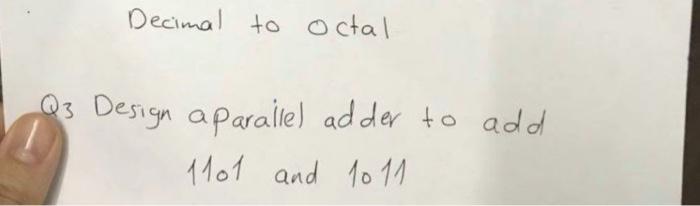 Decimal to octal
Q3 Design a parallel adder to add
1101 and 1011